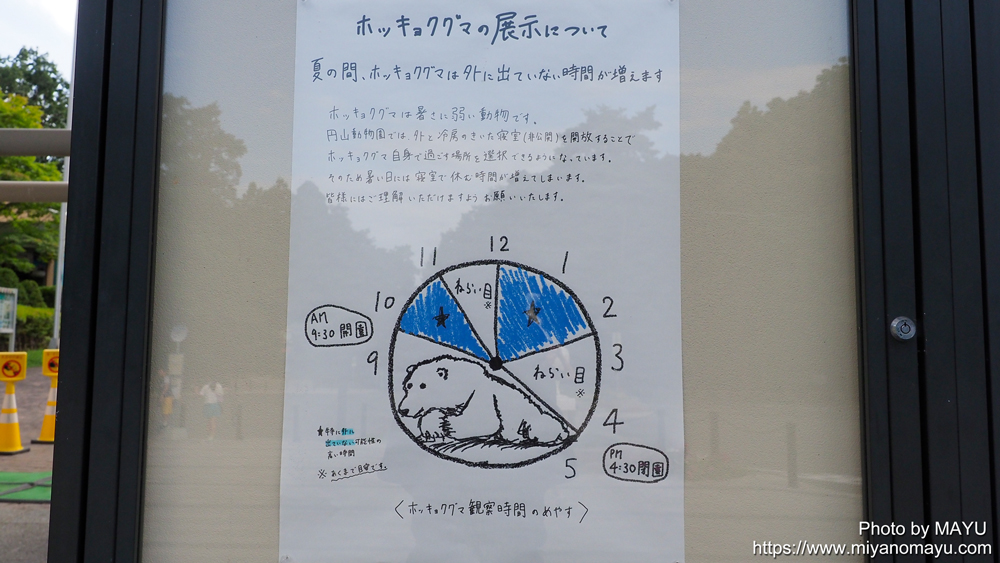 ホッキョクグマの展示について
夏の間、ホッキョクグマは外に出ていない時間が増えます
ホッキョクグマは暑さに弱い動物です。
円山動物園では、外と冷房のきいた寝室(非公開)を開放することで
ホッキョクグマ自身で過ごす場所を選択できるようになっています。
そのため暑い日には寝室で休む時間が増えてしまいます。
皆様にはご理解いただけますようお願いいたします。
12
11
1
ねらい目
※
10
★
★
2
AM
9:30開園
9
3
ねらい目
※
4
★特に外に
出ていない可能性の
高い時間
※あくまで目安です。
5
PM
4:30閉園
〈ホッキョクグマ観察時間のめやす〉
Photo by MAYU
https://www.miyanomayu.com